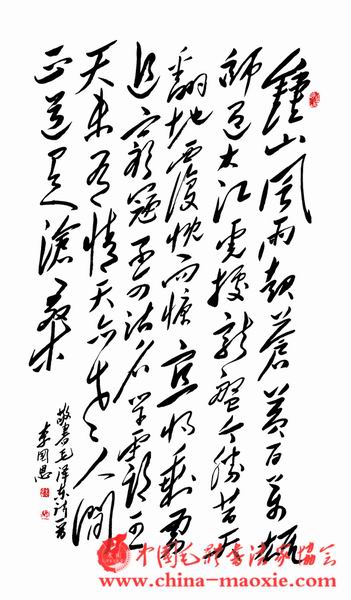 鍾山風雨起蒼黃百萬雄
師過大江虎踞龍盤今勝昔天
翻地覆慨而慷宜將剩勇
追窮寇不可沽名學霸王
天若有情天亦老人間
正道是滄桑
敬書毛澤東詩一首
李國恩
中国毛體書法家協會
www.china-maoxie.com